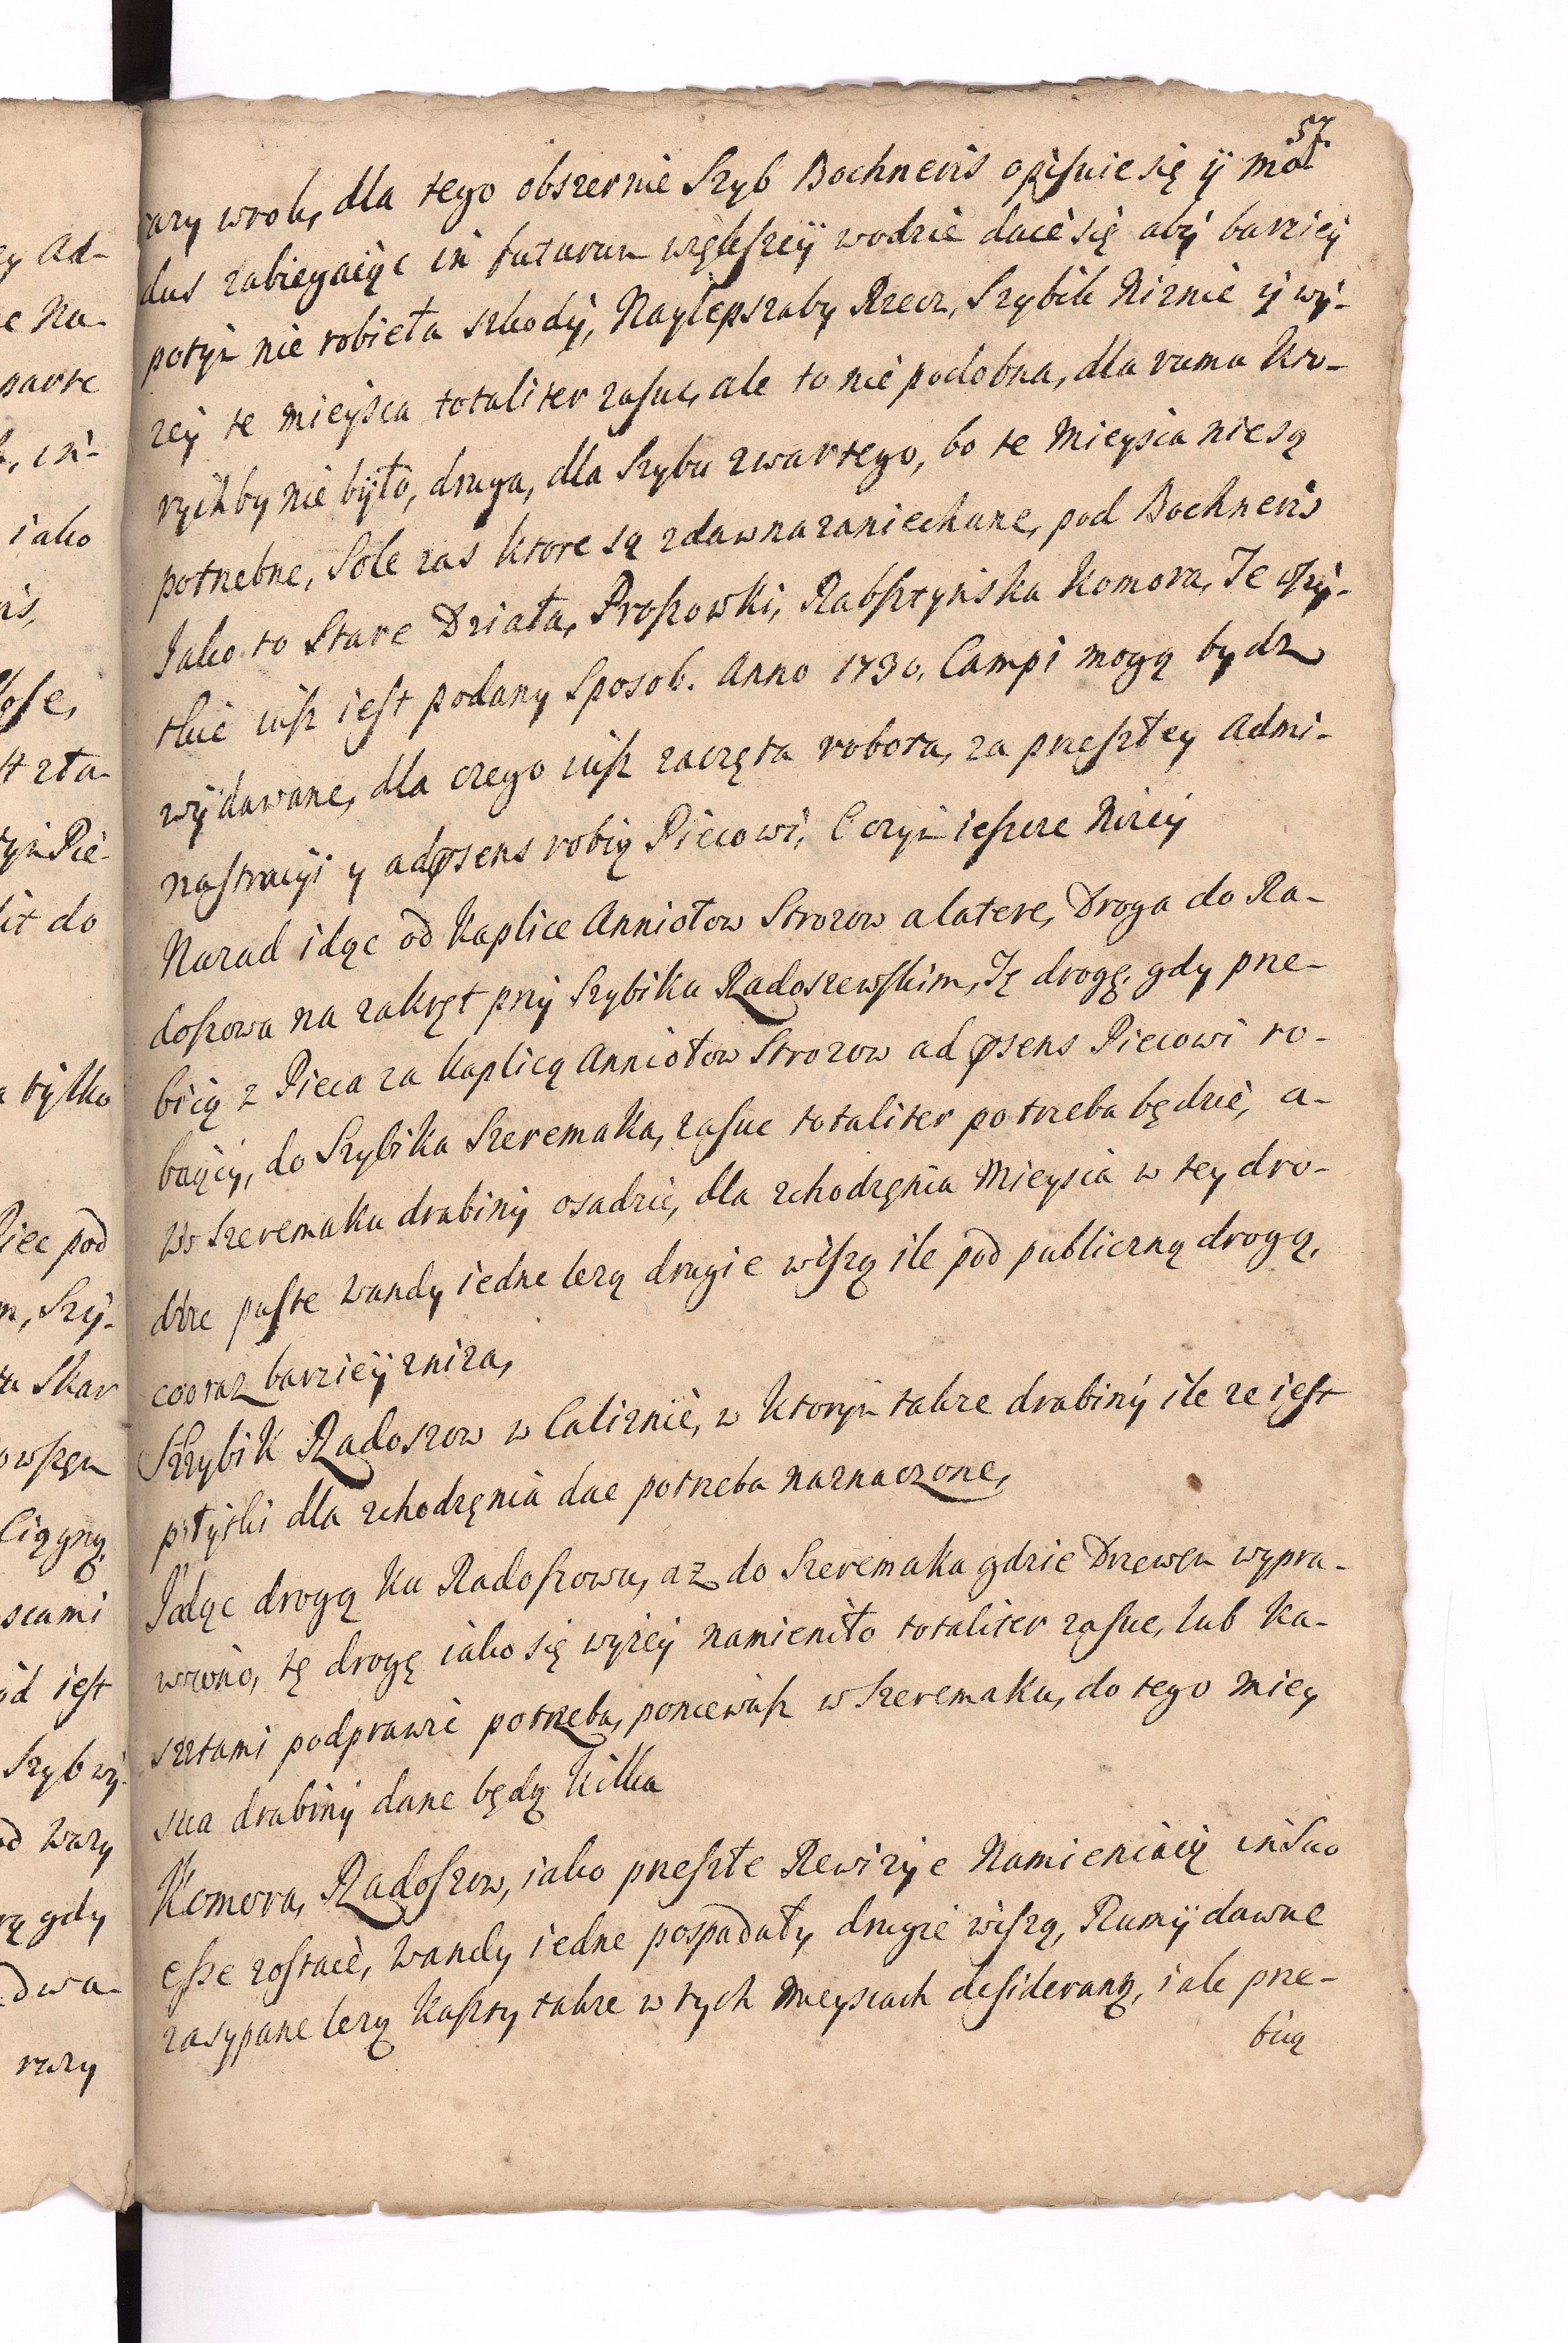 57.
razy wrok, dla tego obszernie Szyb Bochneris opisuie się ÿ mo-
dus zabiegaiąc in futurum większeÿ wodzie daie się abÿ barzieÿ
potÿm nie robieła szkodÿ, Naylepszaby Rzecz, Szybik Niznie ÿ wÿ-
zeÿ te mieysca totaliter zasuc, ale to nie podobna, dla rumu kto-
rych by nie było, druga, dla Szybu zwartego, bo te Mieysca nie są
potrzebne, Sole zas ktore są zdawna zaniechane, pod Bochneris
Jako to Stare Działa, Proszowki, Rabsztyńska Komora, Te wszÿ-
tkie iusz iest podany Sposob. Anno 1730. Campi mogą bydz
wÿdawane, dla czego iusz zaczęta robota, za przeszłey Admi-
nastracÿi y adpsens robią Piecowi, Czym ieszcze Nizeÿ
Nazad idąc od Kaplice Anniołow Strozow alatere, Droga do Ra-
doszowa na zakręt przÿ Szybiku Radoszewskim, Tę drogę, gdy prze-
biią z Pieca za Kaplicą Anniołow Strozow ad psens Piecowi ro-
biący, do Szybika Szeremaka, zasuc totaliter potrzeba będzie, a-
Ws Szeremaku drabinÿ osadzic, dla zchodzęnia Mieysca w tey dro-
dze puste Wandy iedne lezą drugie wiszą ile pod publiczną drogą,
co oraz barzieÿ zniza,
Szybik Radoszow w Caliznie, w ktorym takze drabinÿ ile ze iest
płytki dla zchodzęnia dac potrzeba naznaczone,
Jdąc drogą ku Radoszowu, az do Szeremaka gdzie Drzewęn wypra-
wiono, tę drogę iako się wyzeÿ namieniło totaliter zasuc, lub Ka-
sztami podprawic potrzeba, poniewasz w Szeremaku, do tego Miey
sca drabinÿ dane będą kilka
Komora, Radoszow, iako przeszłe Rewizÿe Namieniaią in suo
esse zostaie, Wandy iedne pospadały drugie wiszą, Rumÿ dawne
zasypane lezą kaszty takze w tych mieyscach desiderantur, iak prze-
biią